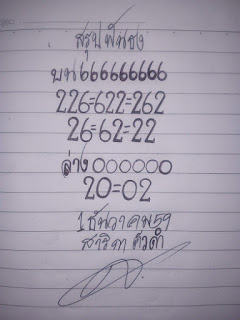 สรุปฟันธง
บน666666666
226=622=262
26=62=22
ล่าง000000
20=02
1ธันวาคม59
สาริกา ตัวดำ